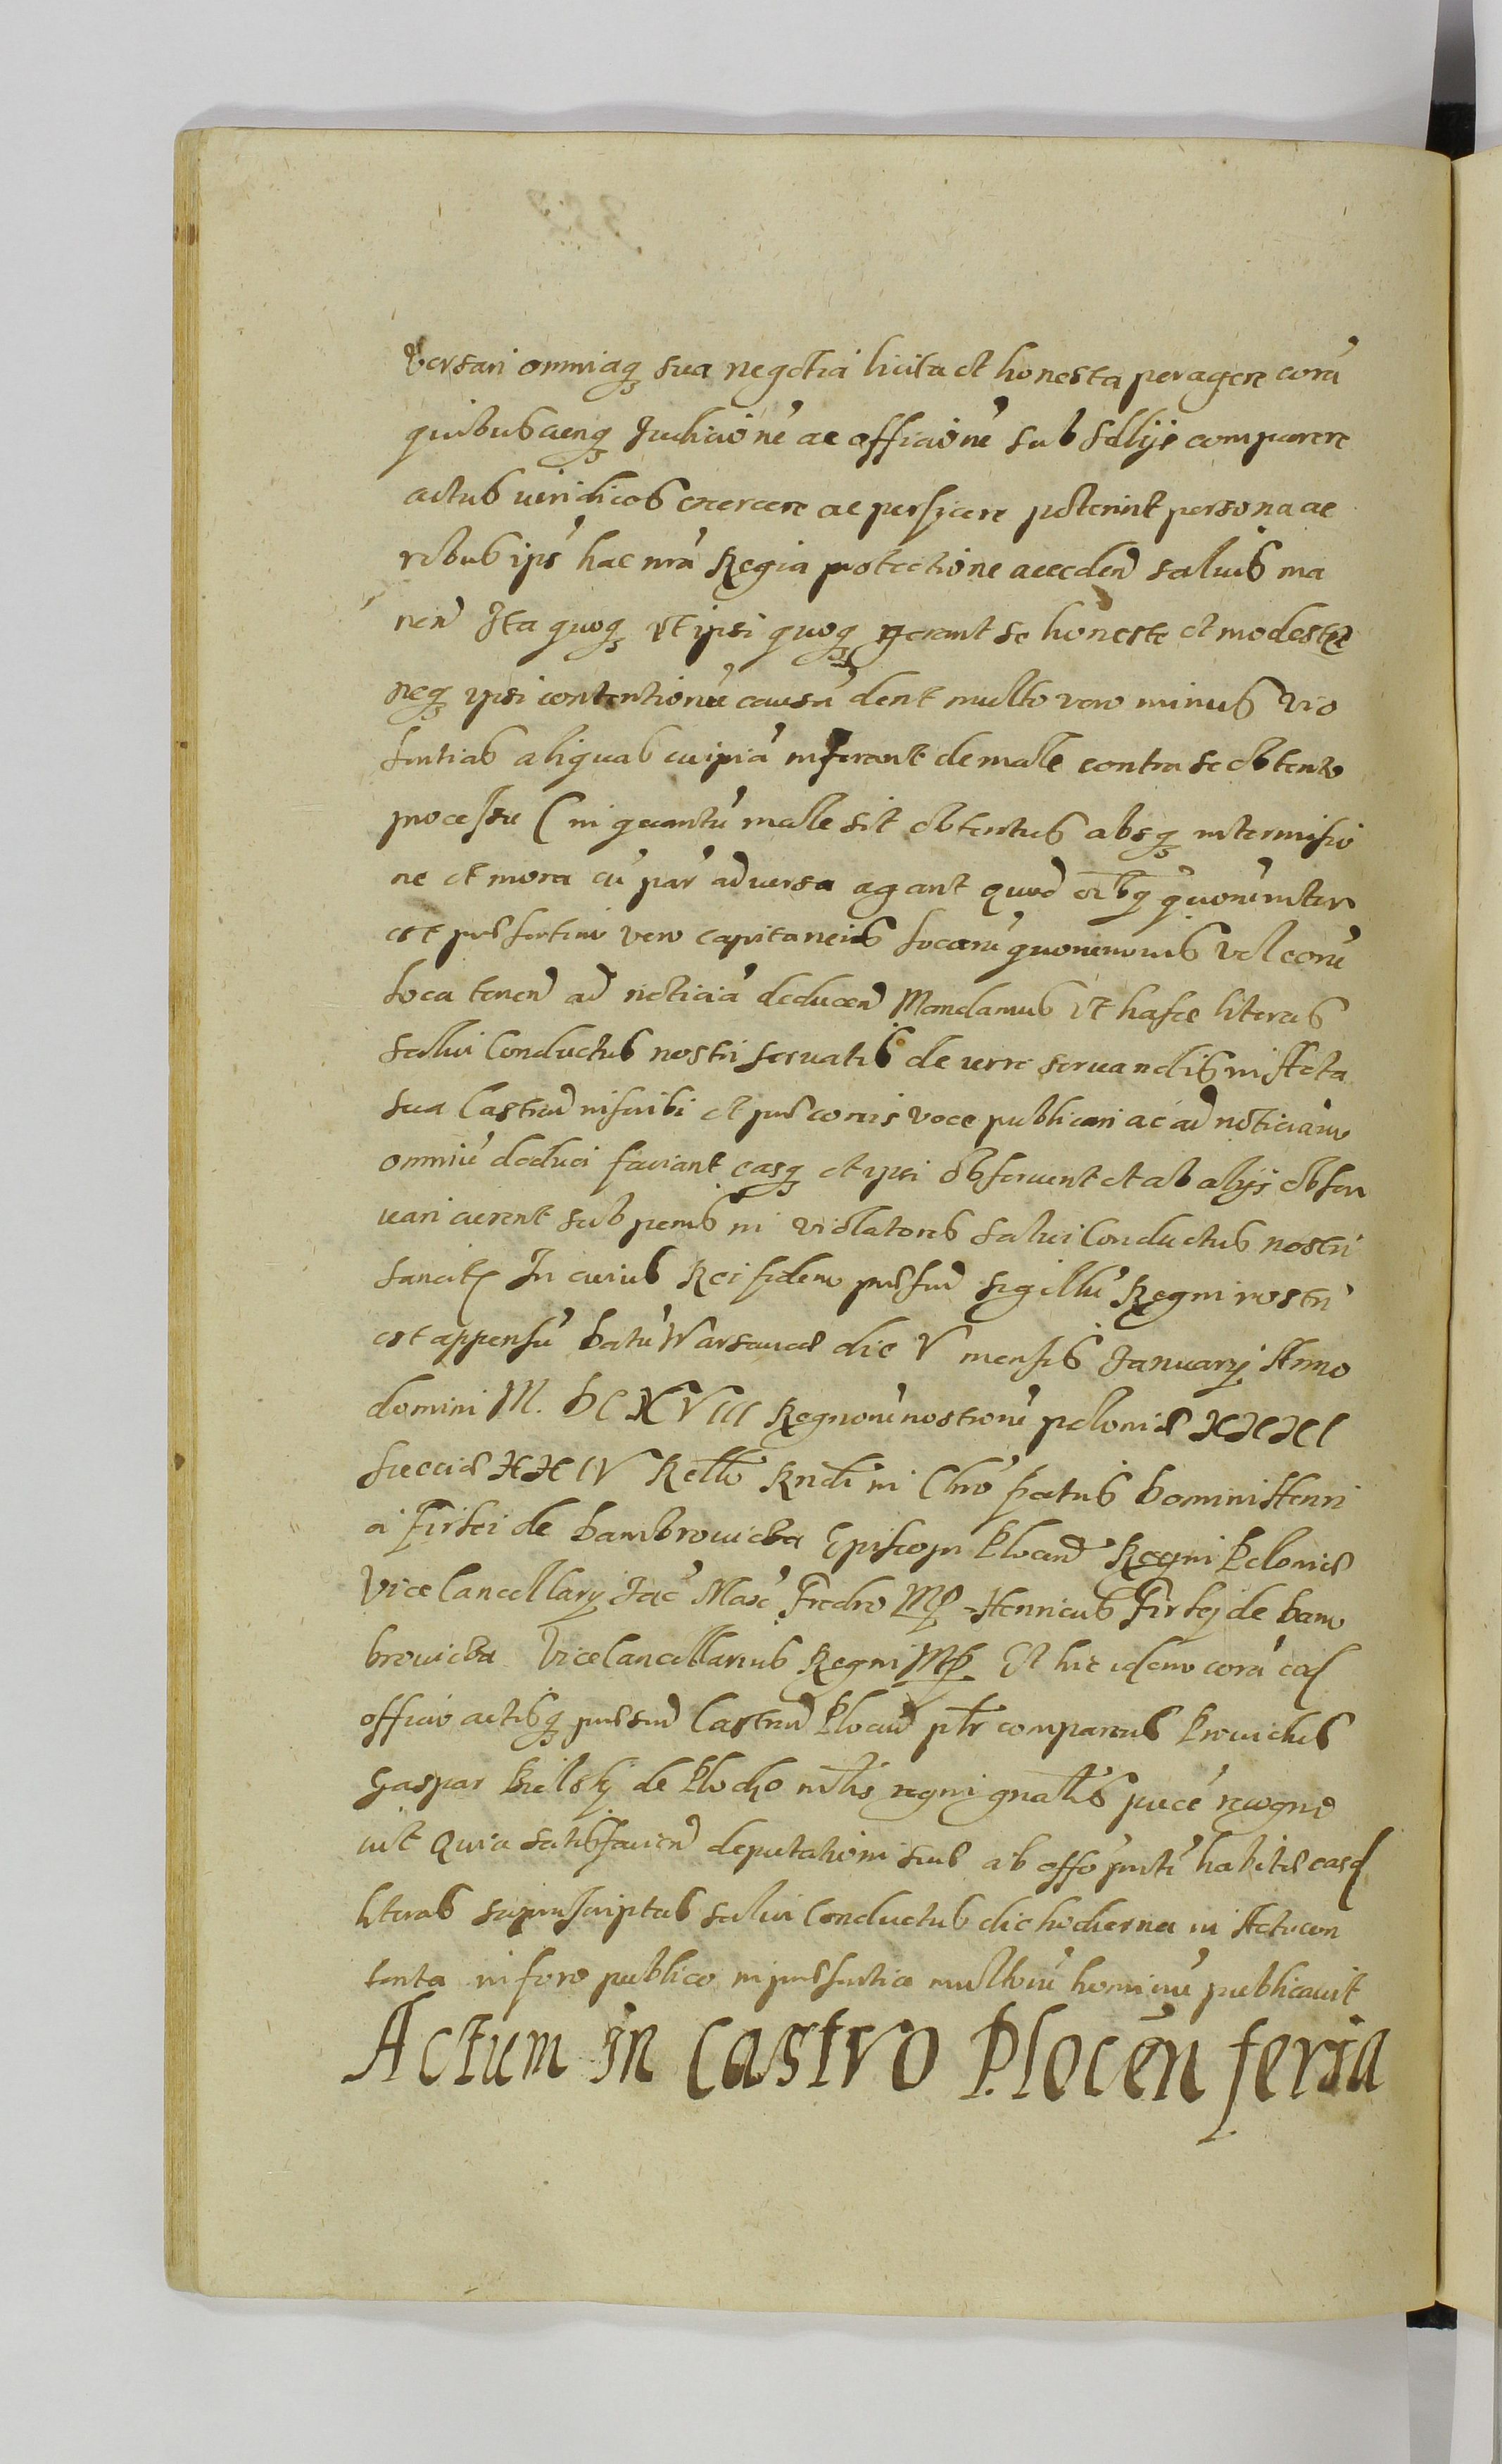 versari omniaq sua negotia licita et honesta peragere corā
quibuscunq Judicior̄ ac officior̄ subsellijs comparere
actus iuridicos exercere ac perficere poterint persona ac
rebus ips̄ hac nr̄a Regia protectione accedeñ saluis ma
neñ Ita quoq vt ipsi quoq gerant se honeste et modeste
neq ipsi contentionū causā dent multo vero minus vio
lentias aliquas cuipiā inferant de male contra se obtento
processu (in quantū male sit obtentus absq intermissio
ne et mora cū par̄ adversa agant quod oībq quor̄ interest
est præsertim vero capitaneis locorū quorumvis vel eorū
loca teneñ ad noticiā deduceñ Mandamus vt hasce literas
salui Conductus nostri servatis de iure servandis in Acta
sua Castreñ inscribi et præconis voce publicari ac ad noticiam
omniū deduci faciant easq et ipsi observent et ab alijs obser
vari curent sub penis in violatores salvi Conductus nostri
sancitis In cuius Rei fidem præsens sigillū Regni nostri
est appensū Datū Warsaviæ die V mensis Januarij Anno
domini M. DC XVIII Regnorū nostrorū poloniæ XXXI
sueciæ XXIV Rello Rndi in Chro patris Domini Henri
ci Firlei de Dambrowicza Episcopi Plocen Regni Poloniæ
Vice Cancellarij Jac Max Fredro MP Henricus Firlej de Dam
browicza Vice Cancellarius Regni MP Et hic idem corā eod
officio actisq præsen Castren Plocen plr comparens Providus
Gaspar Bielsky de Plocko mlis regni gnalis recogno
uit Quia satisfacien deputationi suæ ab offo habitæ easd
literas suprascriptas salvi Conductus die hodierna in Actu con
tenta in foro publico in præsentia multorū hominū publicavit
Actum in Castro Plocen feria